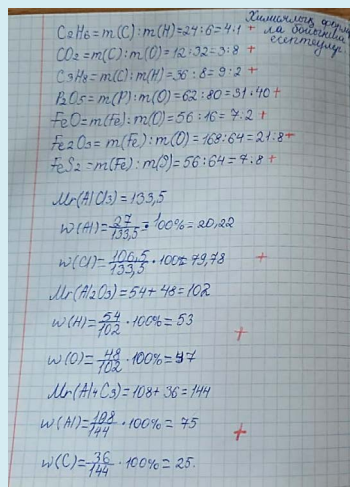 Химиялық форму
ла бойынша
есептеулер.
C2H6=m(C):m(H)=24:6=4:1 +
CO2=m(C):m(O)=12:32=3:8 +
C3H8=m(C):m(H)=36:8=9:2 +
P2O5=m(P):m(O)=62:80=31:40+
FeO=m(Fe):m(O)=56:16=7:2 +
Fe2O3=m(Fe):m(O)=168:64=21:8+
FeS2=m(Fe):m(S)=56:64=7:8+
Mr(AlCl3)=133,5
w(Al)=27/133,5·100%=20,22
w(Cl)=106,5/133,5·100%=79,78 +
Mr(Al2O3)=54+48=102
w(Al)=54/102·100%=53
+
w(O)=48/102·100%=47
Mr(Al4C3)=108+36=144
w(Al)=108/144·100%=75
+
w(C)=36/144·100%=25.